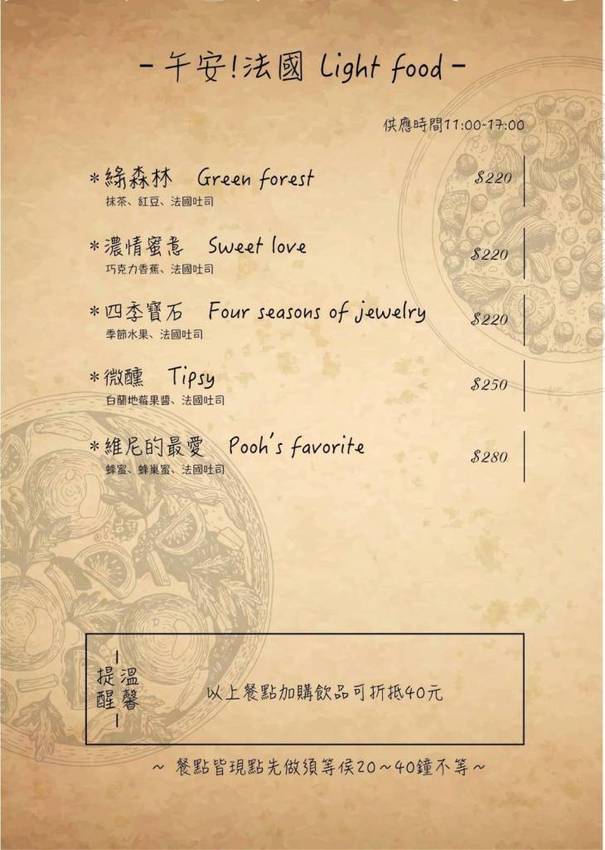 - 午安!法國 Light food -
供應時間11:00-17:00
*綠森林 Green forest $220
抹茶、紅豆、法國吐司
*濃情蜜意 Sweet love $220
巧克力香蕉、法國吐司
*四季寶石 Four seasons of jewelry $220
季節水果、法國吐司
*微醺 Tipsy $250
白蘭地莓果醬、法國吐司
*維尼的最愛 Pooh's favorite $280
蜂蜜、蜂巢蜜、法國吐司
溫馨
提醒
以上餐點加購飲品可折抵40元
~ 餐點皆現點先做須等侯20~40鐘不等~